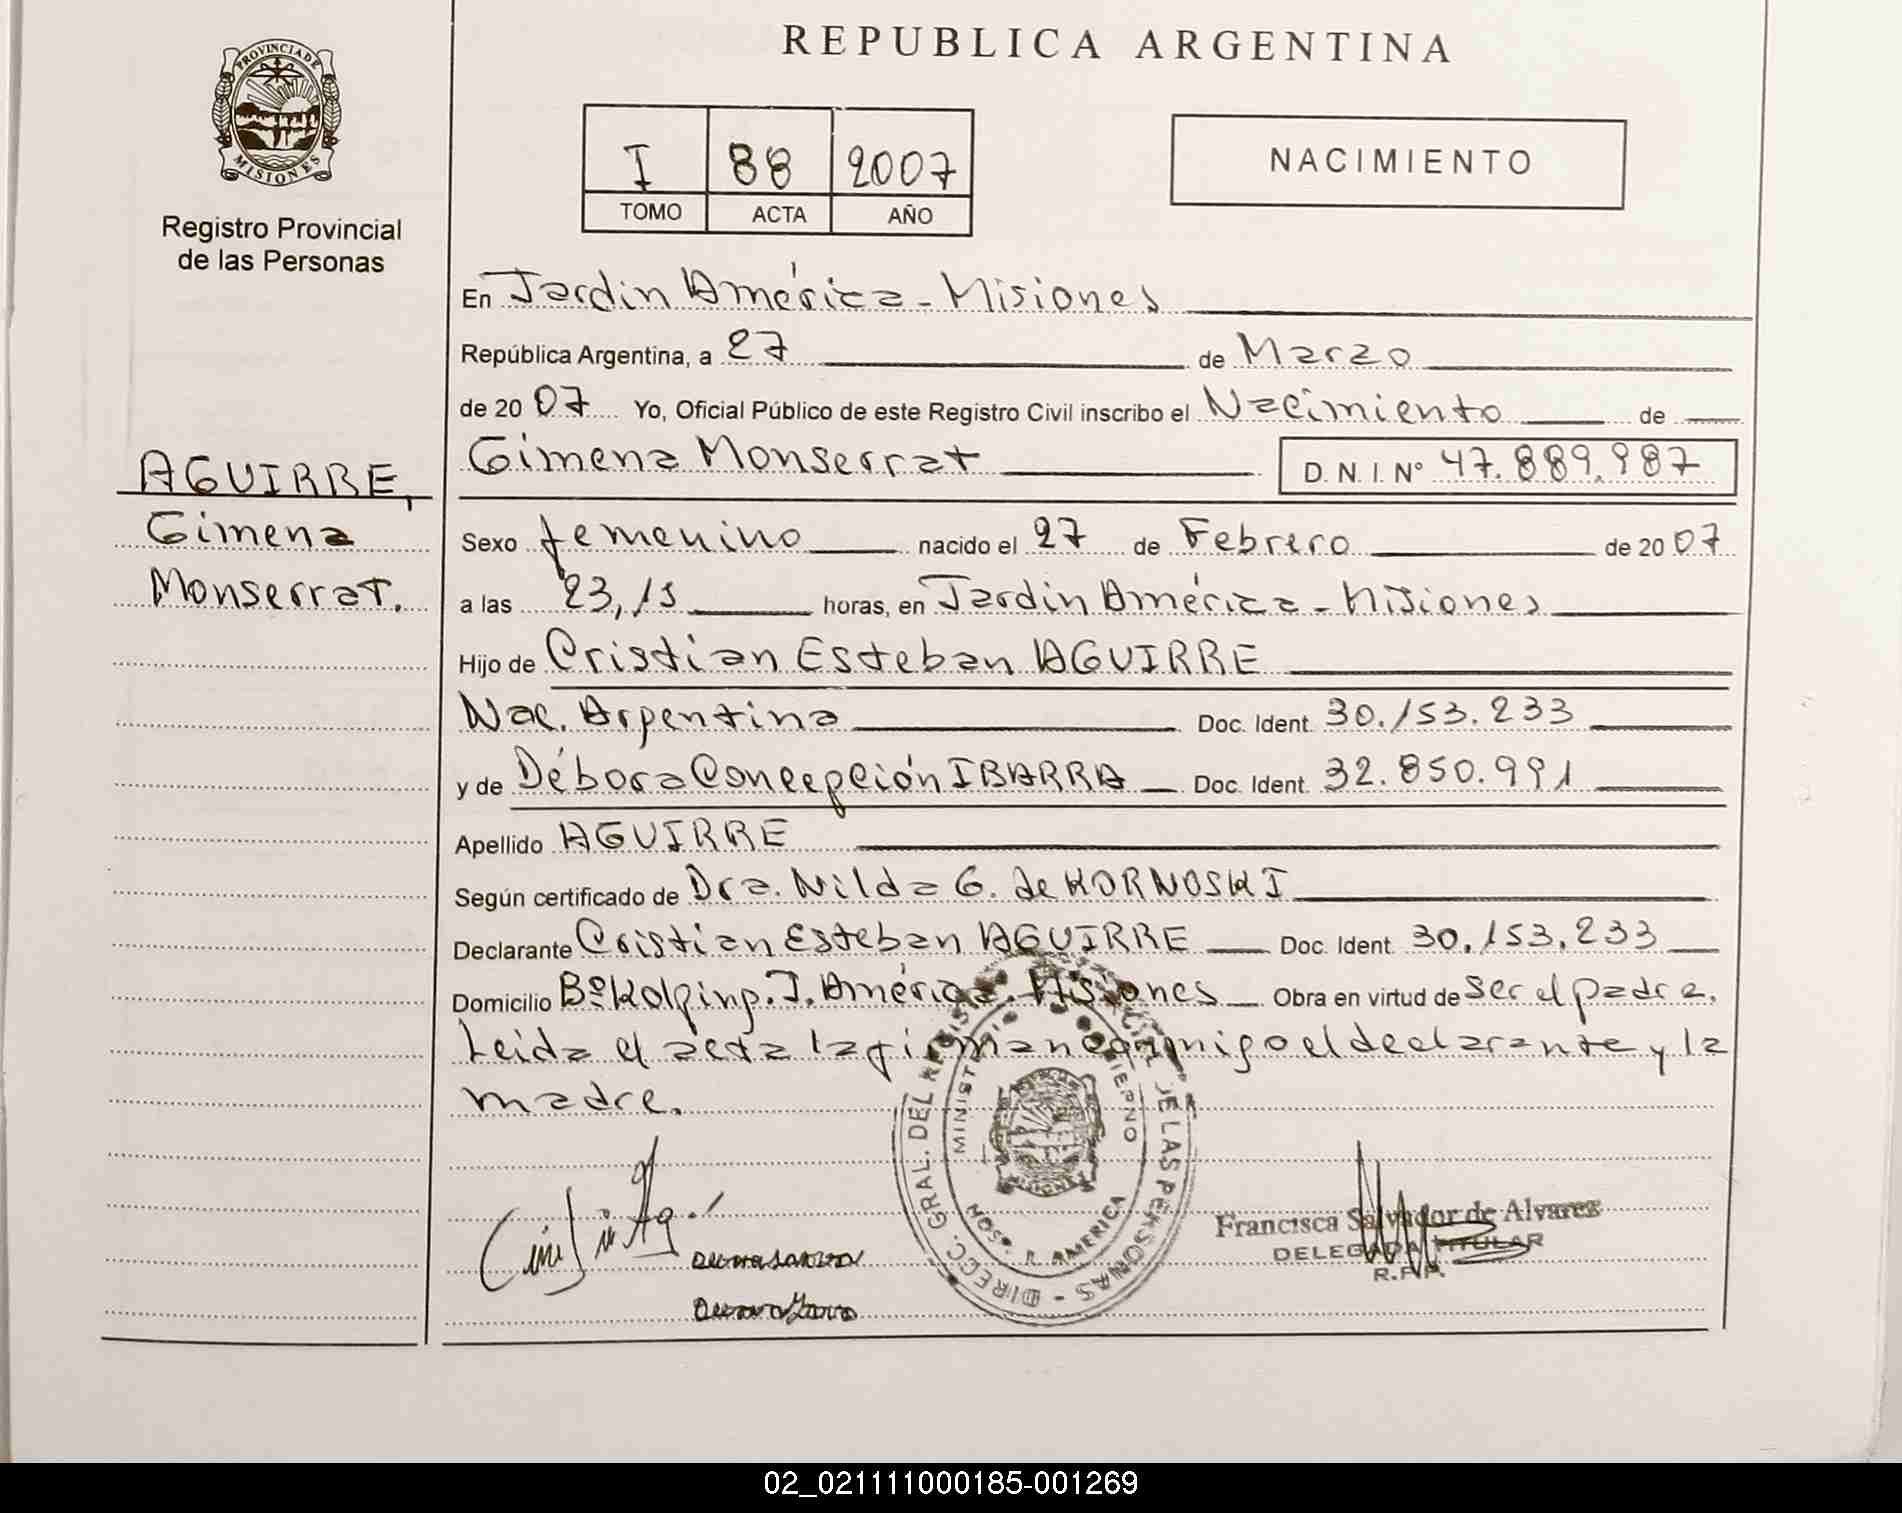 REPUBLICA ARGENTINA
PROVINCIA DE MISIONES
Registro Provincial
de las Personas
I 88 2007
TOMO ACTA AÑO
NACIMIENTO
AGUIRRE,
Gimena
Monserrat.
En Jardin América - Misiones
República Argentina, a 27 de Marzo
de 2007 Yo, Oficial Público de este Registro Civil inscribo el Nacimiento de
Gimena Monserrat D. N. I. Nº 47.889.987
Sexo femenino nacido el 27 de Febrero de 2007
a las 23,15 horas, en Jardin América - Misiones
Hijo de Cristian Esteban AGUIRRE
Nac. Argentina Doc. Ident. 30.153.233
y de Débora Concepción IBARRA Doc. Ident. 32.850.991
Apellido AGUIRRE
Según certificado de Dra. Nilda G. de KORNOSKI
Declarante Cristian Esteban AGUIRRE Doc. Ident. 30.153.233
Domicilio Bº Kolping. J. América. Misiones Obra en virtud de ser el padre.
Leida el acta la firman conmigo el declarante y la
madre.
DIRECC. GRAL. DEL REGISTRO DE LAS PERSONAS
MINISTERIO GOBIERNO
MISIONES
AMERICA
Francisca Salvador de Alvarez
DELEGADA TITULAR
R.P.P.
02_021111000185-001269